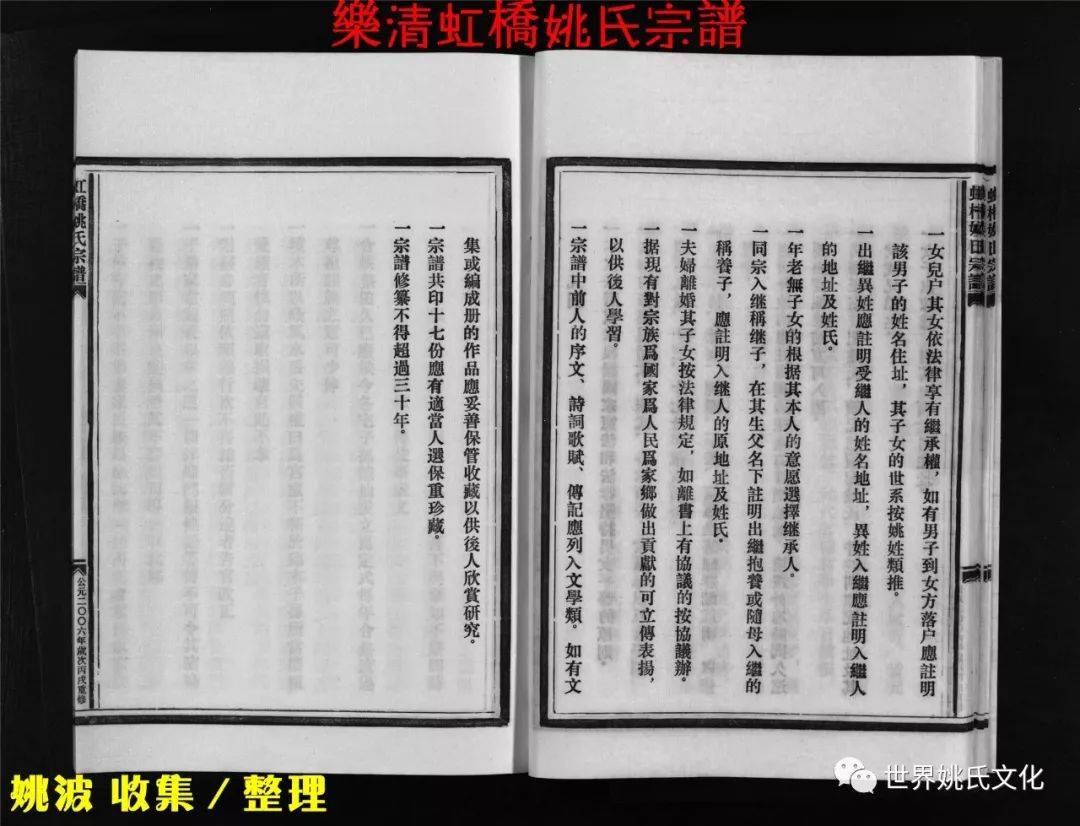 樂清虹橋姚氏宗譜
一女兒户其女依法律享有繼承權，如有男子到女方落户應註明
該男子的姓名住址，其子女的世系按姚姓類推。
一出繼異姓應註明受繼人的姓名地址，異姓入繼應註明入繼人
的地址及姓氏。
一年老無子女的根据其本人的意愿選擇继承人。
一同宗入继稱继子，在其生父名下註明出繼抱養或隨母入繼的
稱養子，應註明入继人的原地址及姓氏。
一夫婦離婚其子女按法律規定，如離書上有協議的按協議辦。
一据現有對宗族爲國家爲人民爲家鄉做出貢獻的可立傳表揚，
以供後人學習。
一宗譜中前人的序文、詩詞歌賦、傳記應列入文學類。如有文
集或編成册的作品應妥善保管收藏以供後人欣賞研究。
一宗譜共印十七份應有適當人選保重珍藏。
一宗譜修纂不得超過三十年。
虹橋姚氏宗譜
公元二〇〇六年歲次丙戌重修
姚波 收集／整理
世界姚氏文化